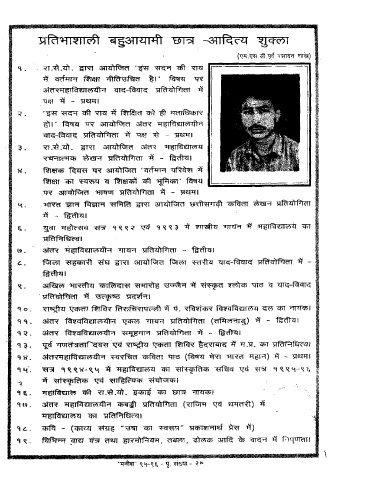 प्रतिभाशाली बहुआयामी छात्र -आदित्य शुक्ला
(एम.एस.सी.पूर्व रसायन शास्त्र)
१. रा.से.यो. द्वारा आयोजित 'इस सदन की राय
में वर्तमान शिक्षा नीतिउचित है।' विषय पर
अंतरमहाविद्यालयीन वाद-विवाद प्रतियोगिता में
पक्ष में - प्रथम।
२. 'इस सदन की राय में शिक्षित को ही मताधिकार
हो।' विषय पर आयोजित अंतर महाविद्यालयीन
वाद-विवाद प्रतियोगिता में पक्ष से - प्रथम।
३. रा.से.यो. द्वारा आयोजित अंतर महाविद्यालय
रचनात्मक लेखन प्रतियोगिता में - द्वितीय।
४. शिक्षक दिवस पर आयोजित 'वर्तमान परिवेश में
शिक्षा का स्वरूप व शिक्षकों की भूमिका' विषय
पर आयोजित भाषण प्रतियोगिता में - प्रथम।
५. भारत ज्ञान विज्ञान समिति द्वारा आयोजित छत्तीसगढ़ी कविता लेखन प्रतियोगिता
में - द्वितीय।
६. युवा महोत्सव सत्र १९९२ एवं १९९३ में शास्त्रीय गायन में महाविद्यालय का
प्रतिनिधित्व।
७. अंतर महाविद्यालयीन गायन प्रतियोगिता - द्वितीय।
८. जिला सहकारी संघ द्वारा आयोजित जिला स्तरीय वाद-विवाद प्रतियोगिता में -
द्वितीय।
९. अखिल भारतीय कालिदास समारोह उज्जैन में संस्कृत श्लोक पाठ व वाद-विवाद
प्रतियोगिता में उत्कृष्ठ प्रदर्शन।
१०. राष्ट्रीय एकता शिविर तिरुचिरापल्ली में पं. रविशंकर विश्वविद्यालय दल का नायक।
११. अंतर विश्वविद्यालयीन एकल गायन प्रतियोगिता (तमिलनाडु) में - द्वितीय।
१२. अंतर विश्वविद्यालयीन समूहगान प्रतियोगिता में - द्वितीय।
१३. पूर्व गणतंत्रता दिवस एवं राष्ट्रीय एकता शिविर हैदराबाद में म.प्र. का प्रतिनिधित्व।
१४. अंतरमहाविद्यालयीन स्वरचित कविता पाठ (विषय मेरा भारत महान) में - प्रथम।
१५. सत्र १९९४-९५ में महाविद्यालय का सांस्कृतिक सचिव एवं सत्र १९९५-९६
में सांस्कृतिक एवं साहित्यिक संयोजक।
१६. महाविद्यालय की रा.से.यो. इकाई का छात्र नायक।
१७. अंतर महाविद्यालयीन कबड्डी प्रतियोगिता (राजिम एवं धमतरी) में
महाविद्यालय का प्रतिनिधित्व।
१८. कवि - (काव्य संग्रह "उषा का स्वरूप" प्रकाशनार्थ प्रेस में)
१९. विभिन्न वाद्य यंत्र तथा हारमोनियम, तबला, ढोलक आदि के वादन में निपुणता।
९५-९६ - पृ. संख्या - २७